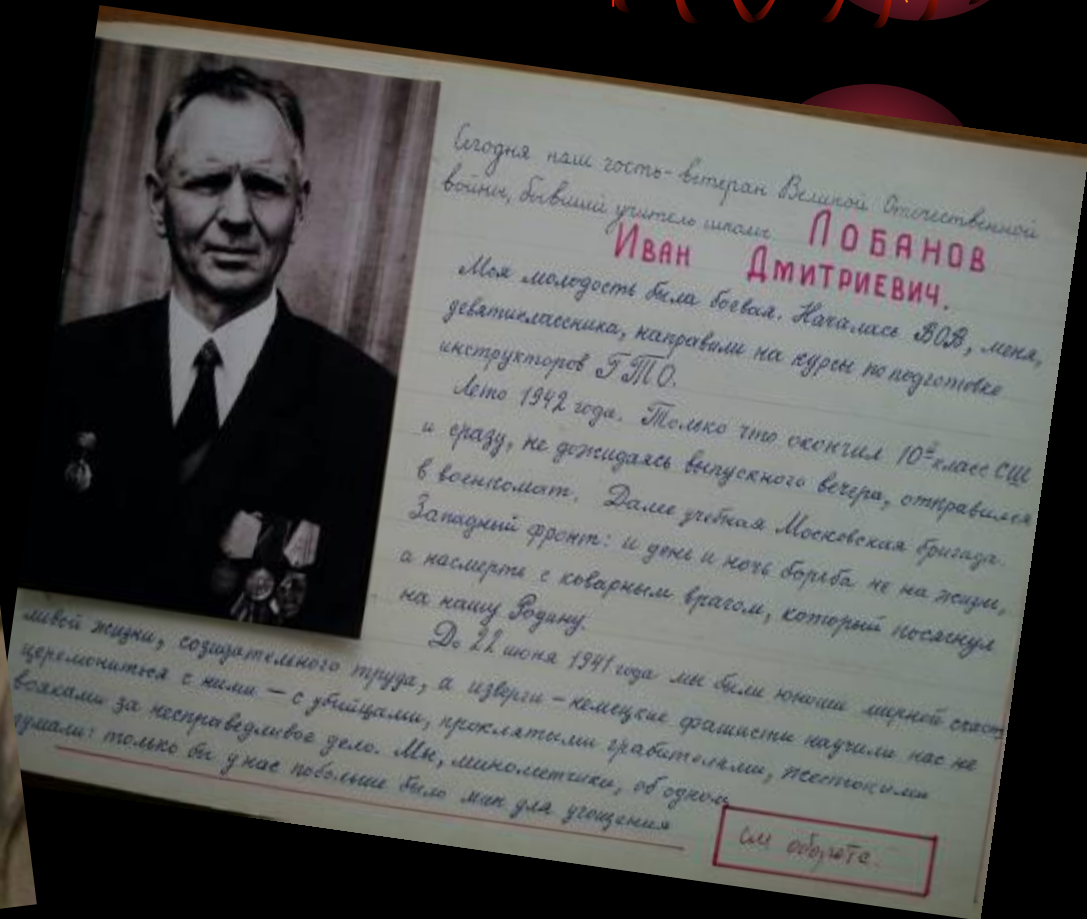 Сегодня наш гость-ветеран Великой Отечественной
войны, бывший учитель школы ЛОБАНОВ
ИВАН ДМИТРИЕВИЧ.
Моя молодость была боевая. Началась ВОВ, меня,
девятиклассника, направили на курсы по подготовке
инструкторов ГТО.
Лето 1942 года. Только что окончил 10й класс СШ
и сразу, не дожидаясь выпускного вечера, отправился
в военкомат. Далее учебная Московская бригада.
Западный фронт: и день и ночь борьба не на жизнь,
а насмерть с коварным врагом, который посягнул
на нашу Родину.
До 22 июня 1941 года мы были юноши мирной счаст
ливой жизни, созидательного труда, а изверги – немецкие фашисты научили нас не
церемониться с ними — с убийцами, проклятыми грабителями, жестокими
вояками за несправедливое дело. Мы, минометчики, об одном
думали: только бы у нас побольше было мин для угощения
см оборота.